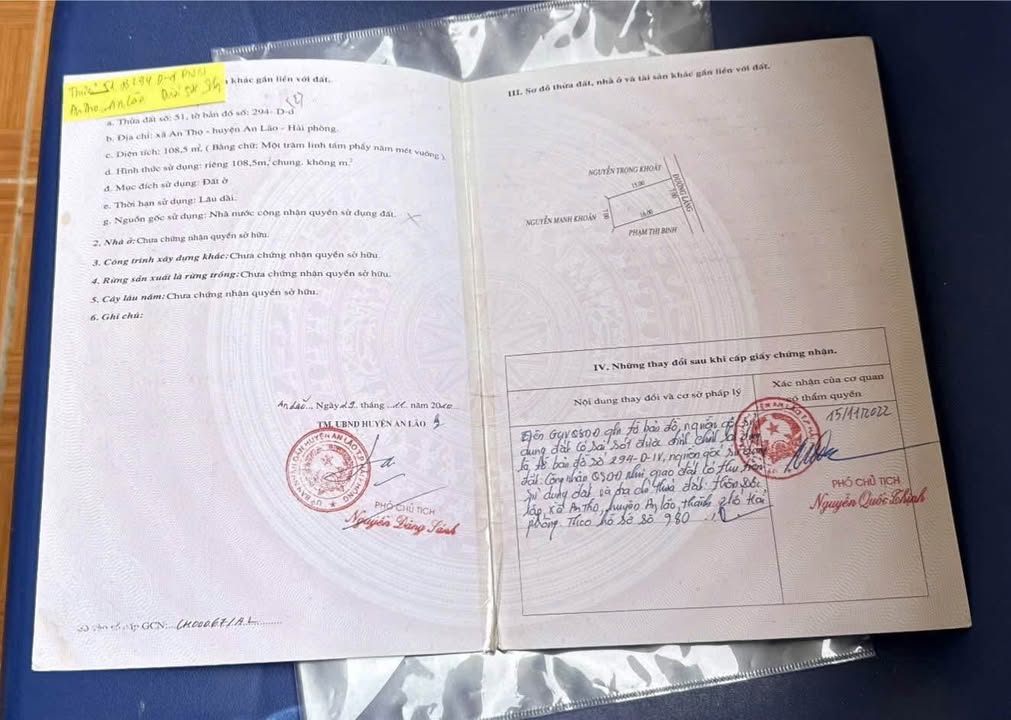 Thửa 51 B 294 D-d
An Thọ, An Lão
khác gắn liền với đất.
a. Thửa đất số: 51, tờ bản đồ số: 294- D-d
b. Địa chỉ: xã An Thọ - huyện An Lão - Hải phòng.
c. Diện tích: 108,5 m², ( Bằng chữ: Một trăm linh tám phẩy năm mét vuông ).
d. Hình thức sử dụng: riêng 108,5m², chung. không m²
đ. Mục đích sử dụng: Đất ở
e. Thời hạn sử dụng: Lâu dài.
g. Nguồn gốc sử dụng: Nhà nước công nhận quyền sử dụng đất.
2. Nhà ở: Chưa chứng nhận quyền sở hữu.
3. Công trình xây dựng khác: Chưa chứng nhận quyền sở hữu.
4. Rừng sản xuất là rừng trồng: Chưa chứng nhận quyền sở hữu.
5. Cây lâu năm: Chưa chứng nhận quyền sở hữu.
6. Ghi chú:
An Lão, Ngày 29 tháng 11 năm 2010
TM. UBND HUYỆN AN LÃO
PHÓ CHỦ TỊCH
Nguyễn Đăng
Số vào sổ cấp GCN: CH00067/A.L
III. Sơ đồ thửa đất, nhà ở và tài sản khác gắn liền với đất.
NGUYỄN TRỌNG KHOÁT
15.00
ĐƯỜNG LÀNG
7.00
NGUYỄN MẠNH KHOÁN
7.00
16.00
PHẠM THỊ BINH
IV. Những thay đổi sau khi cấp giấy chứng nhận.
Nội dung thay đổi và cơ sở pháp lý
Xác nhận của cơ quan
có thẩm quyền
Trên GCNQSDĐ ghi tờ bản đồ, nguồn gốc sử
dụng đất có sai sót được đính chính là
là tờ bản đồ số 294-D-IV, nguồn gốc sử dụng
đất: Công nhận QSDĐ như giao đất có thu tiền
sử dụng đất và địa chỉ thửa đất: thôn
xã An Thọ, huyện An Lão, thành phố Hải
phòng. Theo hồ sơ số 980
15/11/2022
PHÓ CHỦ TỊCH
Nguyễn Quốc Thịnh